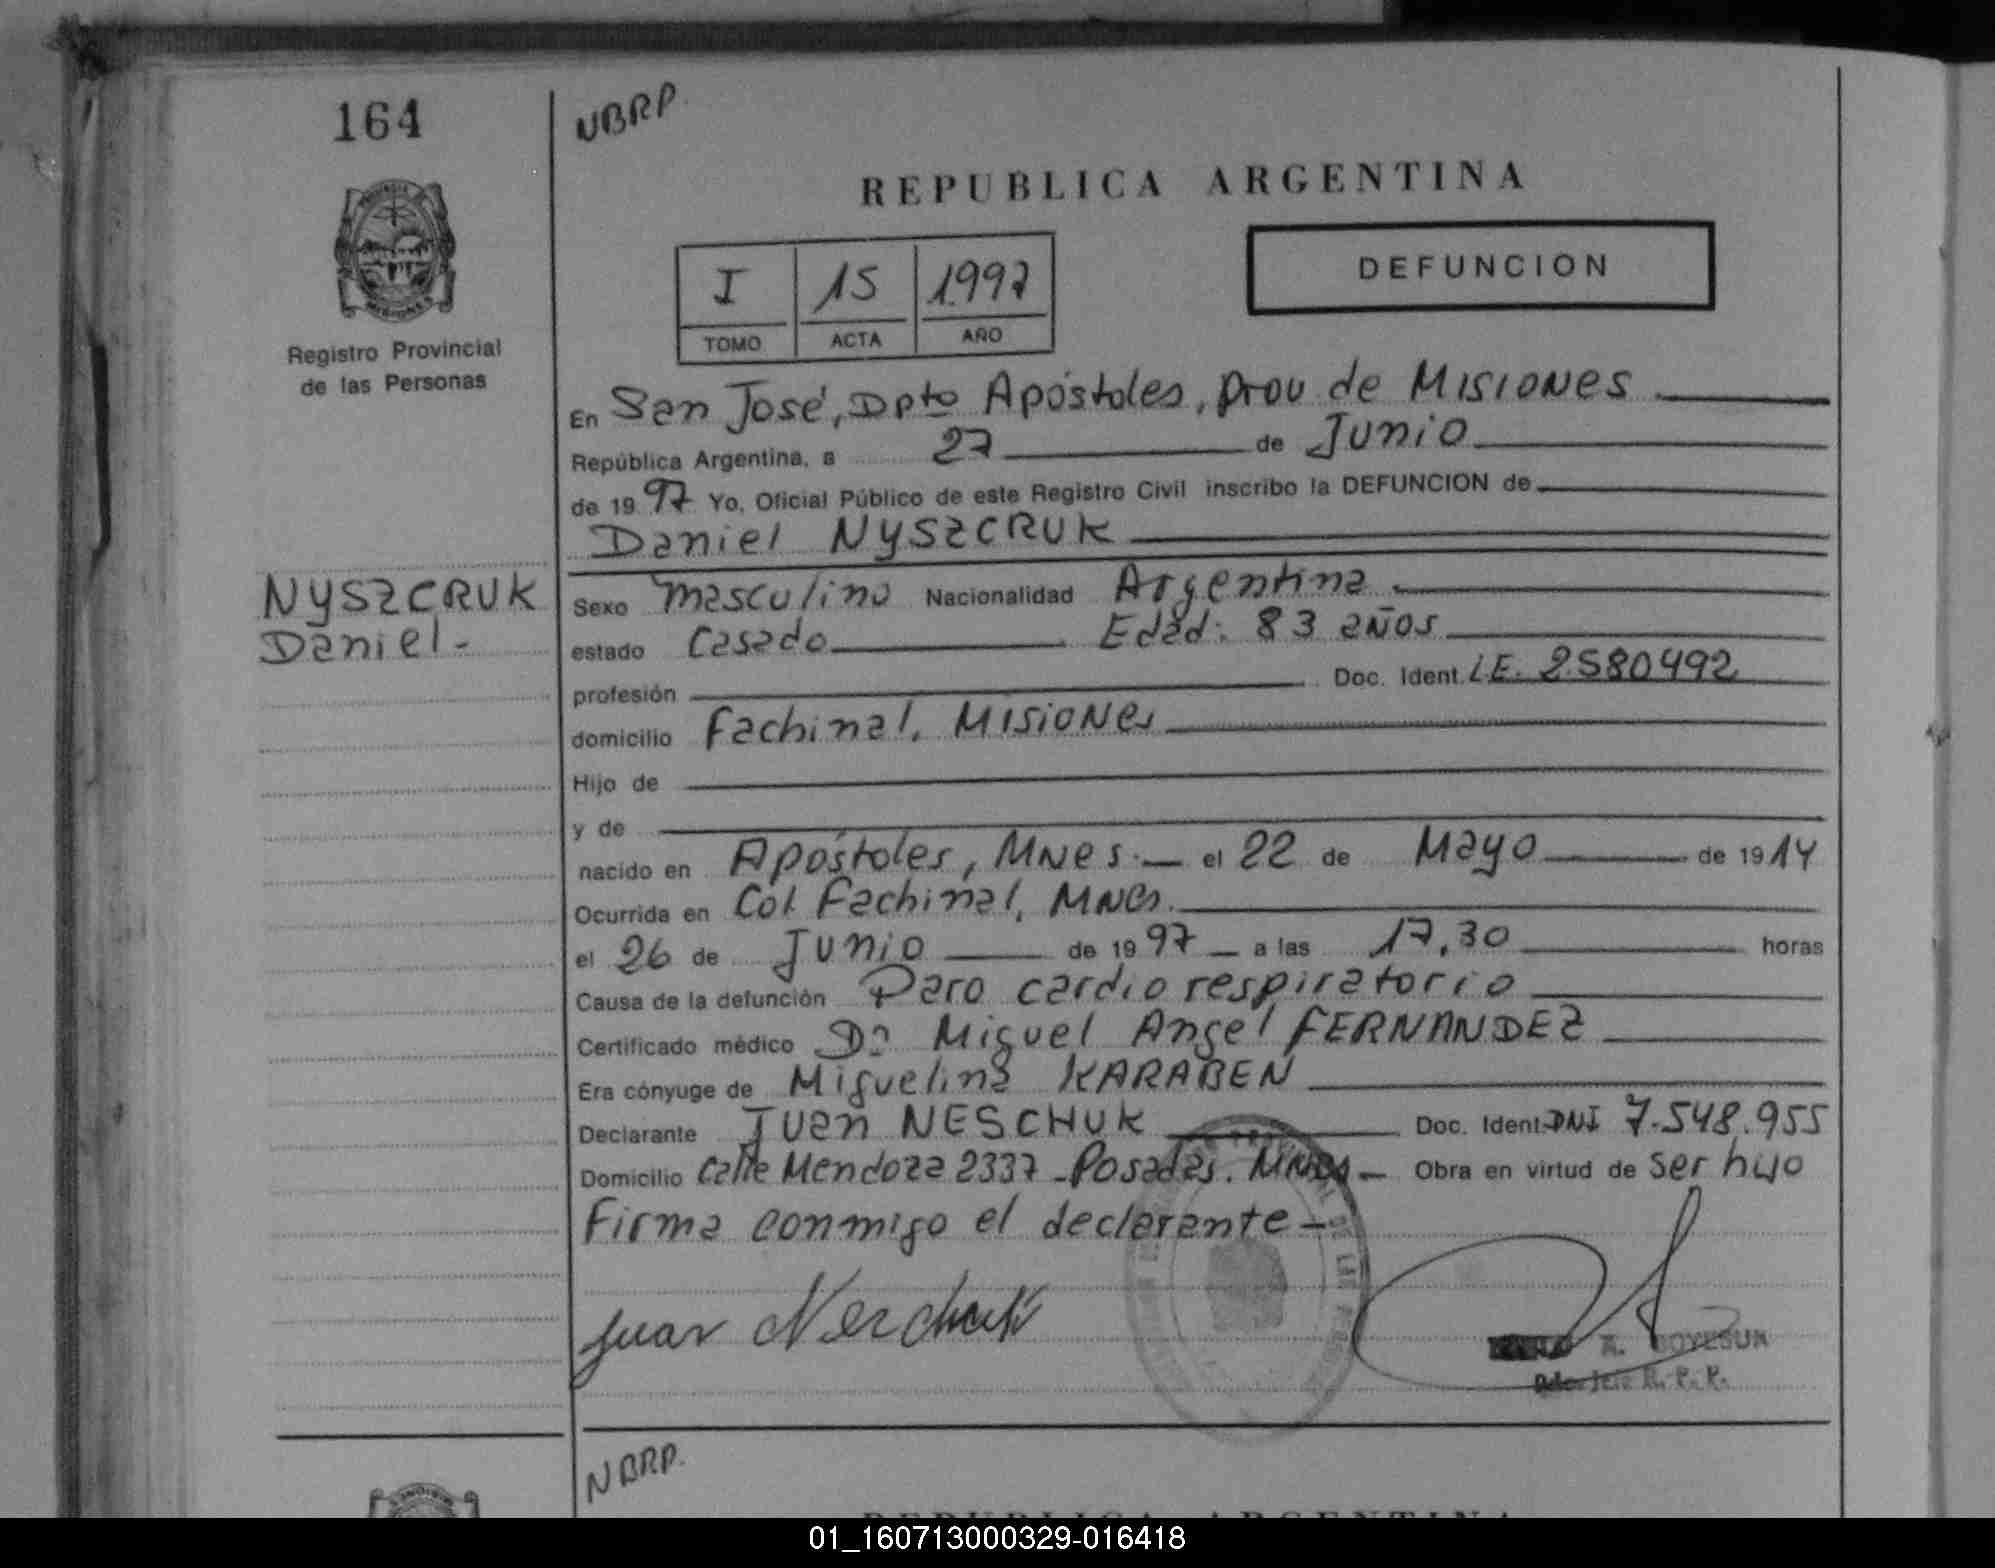 164
NBRP.
REPUBLICA ARGENTINA
I 15 1997
TOMO ACTA AÑO
DEFUNCION
Registro Provincial
de las Personas
En San José, Dpto Apóstoles, Prov de MISIONES
República Argentina, a 27 de Junio
de 1997 Yo, Oficial Público de este Registro Civil inscribo la DEFUNCION de
Daniel NYSZCRUK
NYSZCRUK
Daniel-
Sexo masculino Nacionalidad Argentina
estado Casado Edad: 83 años
profesión Doc. Ident. L.E. 2.580492
domicilio Fachinal, MISIONES
Hijo de
y de
nacido en Apóstoles, Mnes. el 22 de Mayo de 1914
Ocurrida en Col. Fachinal, MNES.
el 26 de Junio de 1997 a las 17,30 horas
Causa de la defunción Paro cardio respiratorio
Certificado médico Dr Miguel Angel FERNANDEZ
Era cónyuge de Miguelina KARABEN
Declarante Juan NESCHUK Doc. Ident. DNI 7.548.955
Domicilio Calle Mendoza 2337 - Posadas. MNES - Obra en virtud de ser hijo
Firma conmigo el declarante -
Juan Neschuk
A.
R. P. P.
NBRP.
REPUBLICA ARGENTINA
01_160713000329-016418